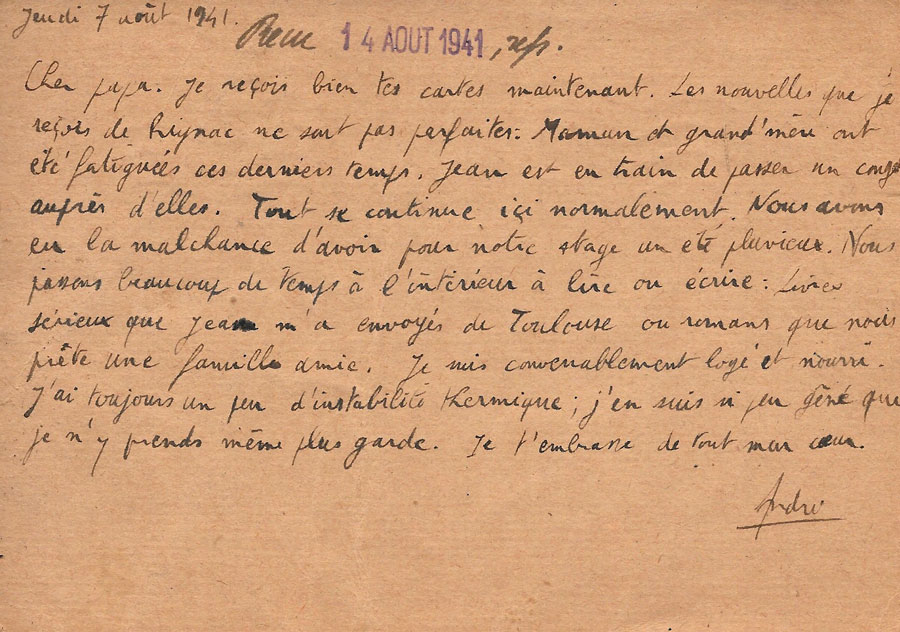 Jeudi 7 août 1941.
Reçu 14 AOUT 1941, rép.
Cher papa. Je reçois bien tes cartes maintenant. Les nouvelles que je
reçois de Rignac ne sont pas parfaites: Maman et grand'mère ont
été fatiguées ces derniers temps. Jean est en train de passer un congé
auprès d'elles. Tout se continue ici normalement. Nous avons
eu la malchance d'avoir pour notre stage un été pluvieux. Nous
passons beaucoup de temps à l'intérieur à lire ou écrire: Livres
sérieux que Jean m'a envoyés de Toulouse ou romans que nous
prête une famille amie. Je suis convenablement logé et nourri.
J'ai toujours un peu d'instabilité thermique; j'en suis si peu gêné que
je n'y prends même plus garde. Je t'embrasse de tout mon cœur.
André